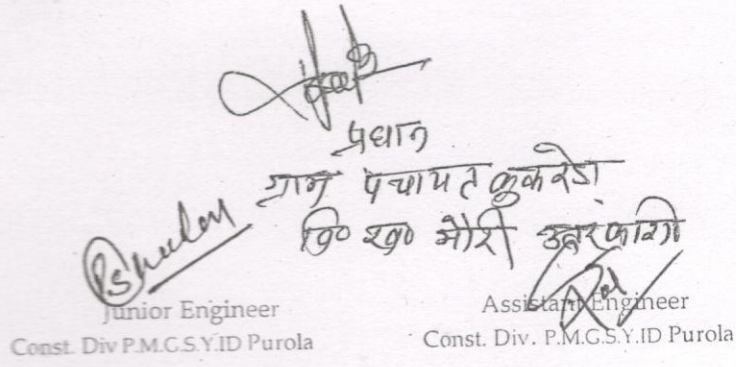 प्रधान
ग्राम पंचायत कुकरेडा
वि० ख० मोरी उत्तरकाशी
Junior Engineer
Const. Div P.M.G.S.Y.ID Purola
Assistant Engineer
Const. Div. P.M.G.S.Y.ID Purola